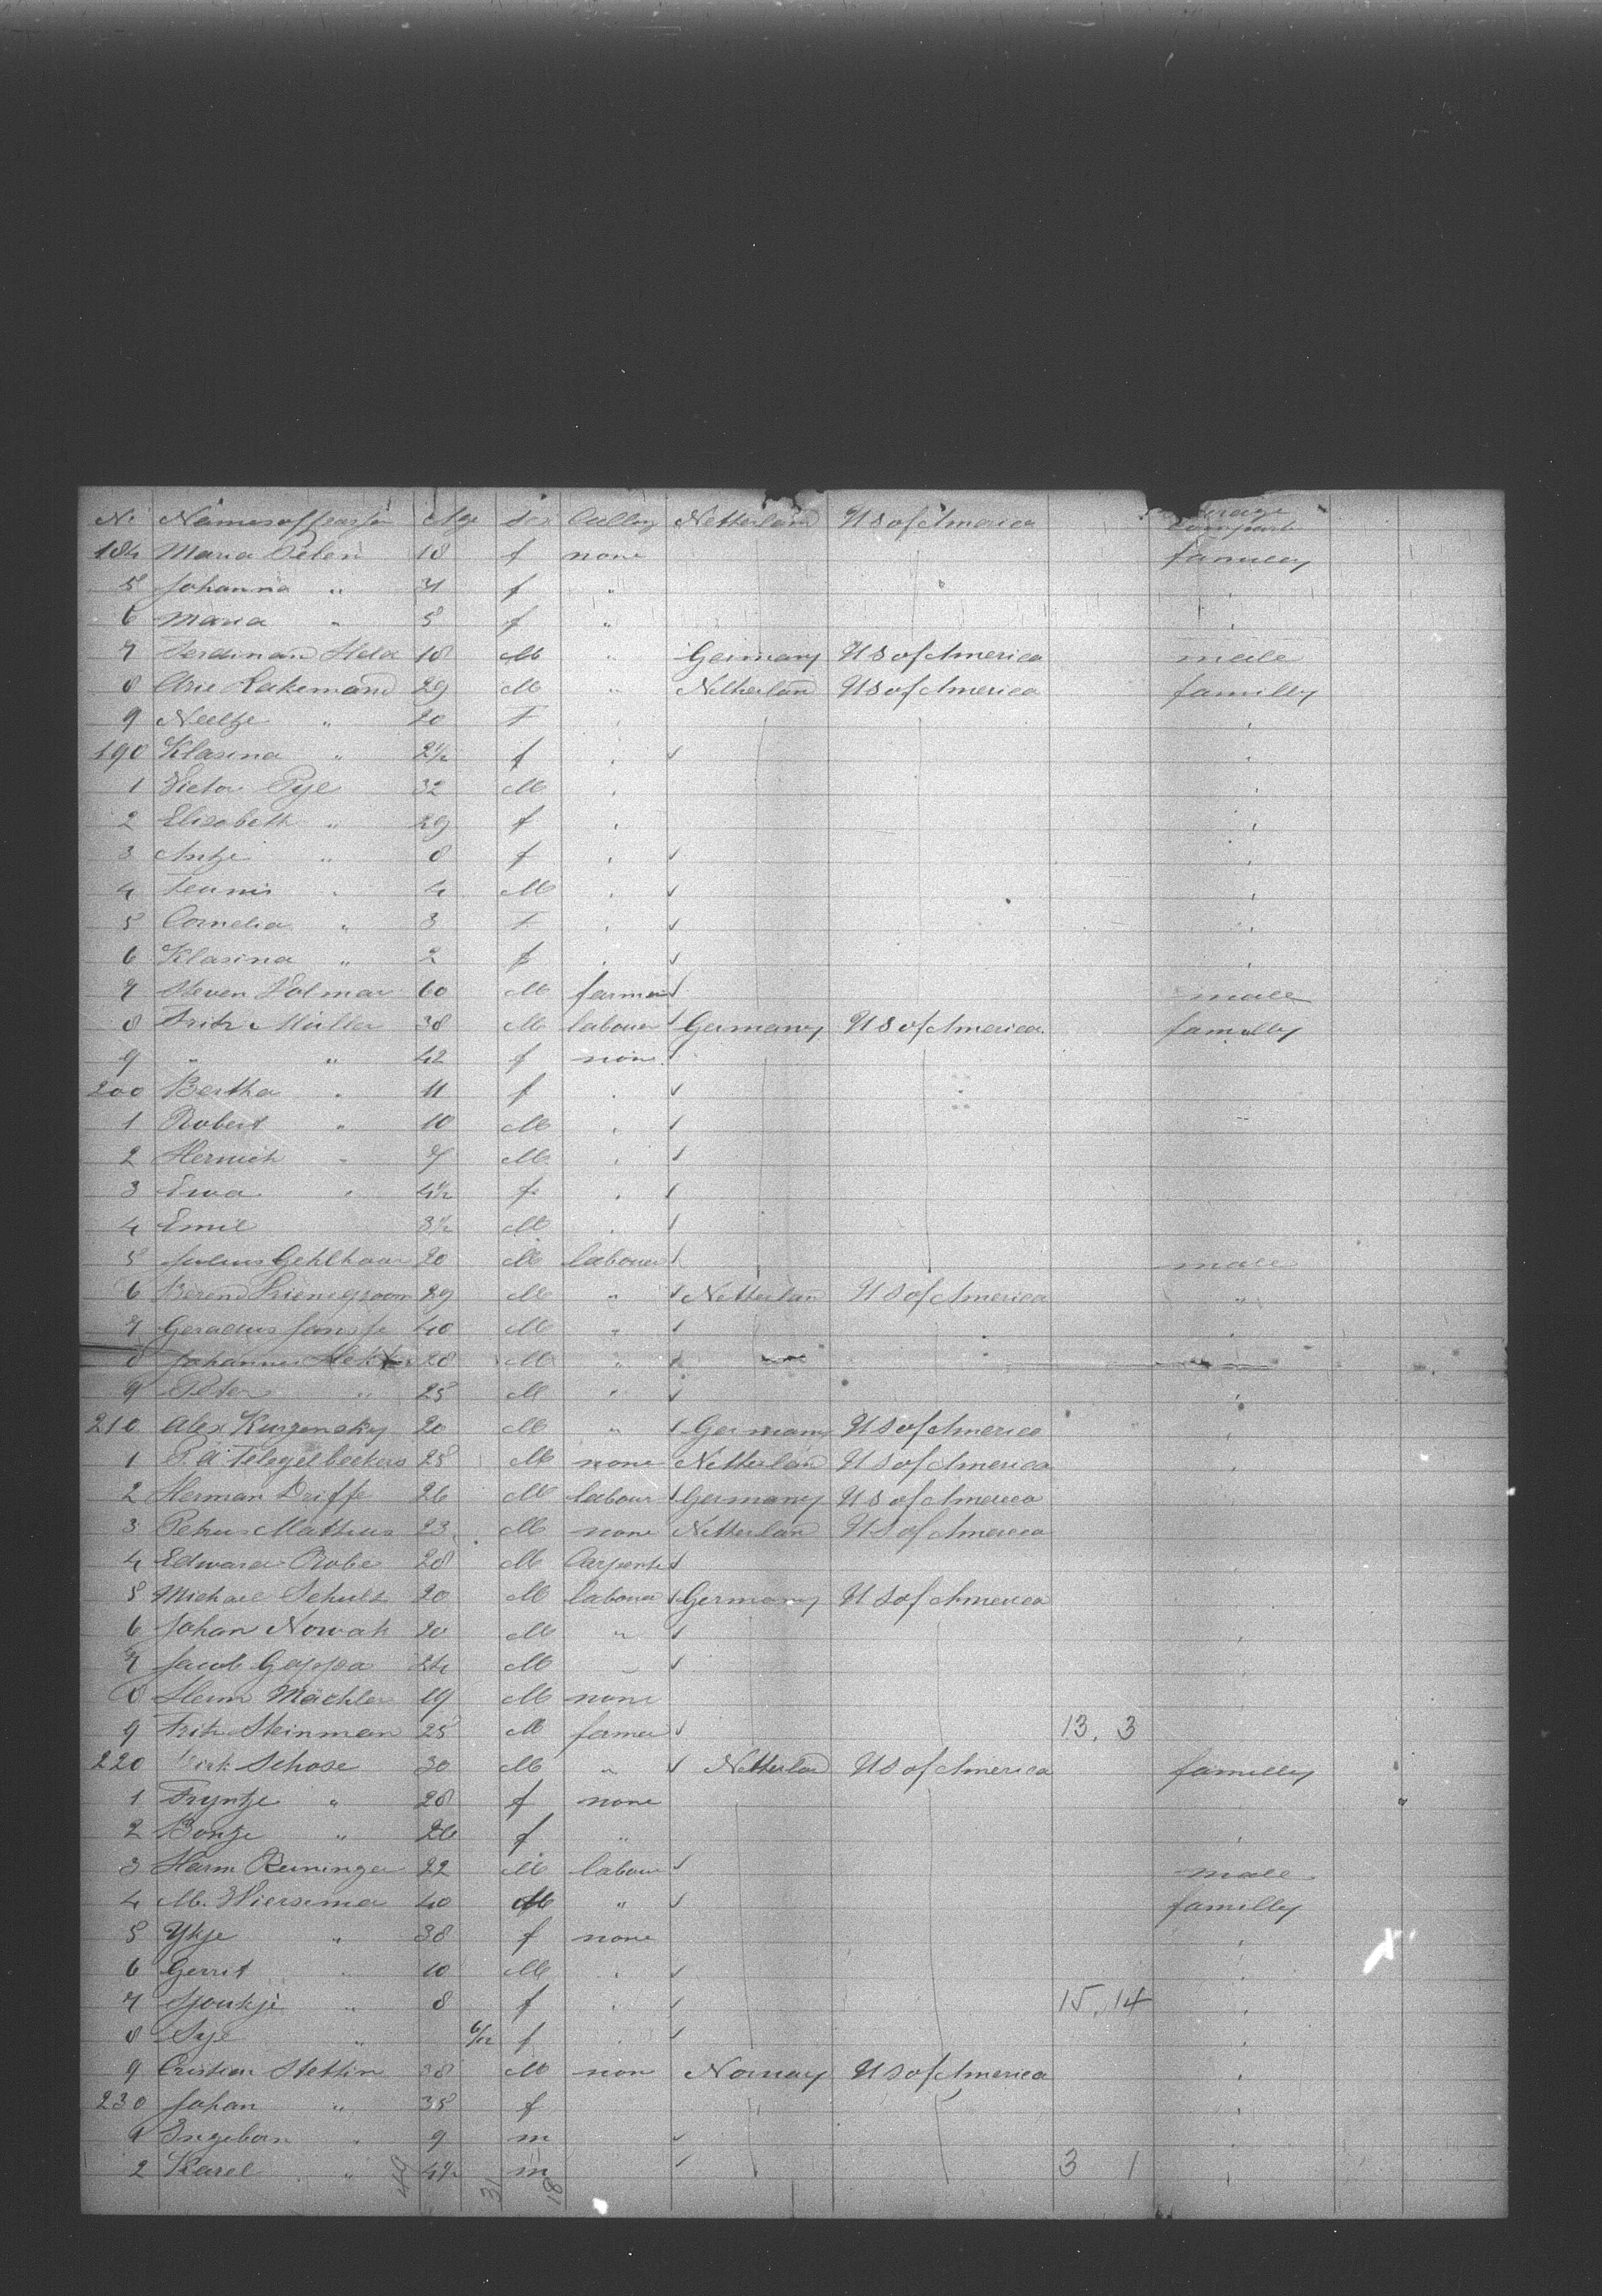 No Names of passen Age sex Calling Netterland US of America Steerage compart
184 Maria Pelen 18 f none familly
5 Johanna " 31 f "
6 Maria " 5 f "
7 Ferdinan Held 18 M " Germany US of America male
8 Arie Rakemand 29 M " Netherland US of America familly
9 Neeltje " 20 F
190 Klasina " 2½ f ✓
1 Victor Pyl 32 M
2 Elisabeth " 29 f
3 Antje " 8 f ✓
4 Teunis " 4 M ✓
5 Cornelia " 3 F ✓
6 Klasina " 2 f ✓
7 Steven Volmar 60 M farmer ✓ male
8 Fritz Müller 38 M labouer ✓ Germany US of America familly
9 " " 42 f none ✓
200 Bertha " 11 f ✓
1 Robert " 10 M ✓
2 Hernich " 7 M ✓
3 Ewa " 4½ f ✓
4 Emil 3½ M ✓
5 Julius Gehlhaar 20 M labouer ✓ male
6 Berend 29 M " ✓ Netterlan US of America "
7 Geradus Jansse 40 M " ✓
8 Johannes 28 M " ✓
9 Peter " 25 M " ✓
210 Alex Kurzensky 20 M " ✓ Germany US of America
1 P. A. Telegelbeekers 25 M none Netterlan US of America
2 Herman Driffe 26 M labour ✓ Germany US of America
3 Petrus Matheus 23 M none Netterlan US of America
4 Edward Robe 28 M Carpente ✓
5 Michael Schulz 20 M labouer ✓ Germany US of America
6 Johan Nowak 20 M " ✓
7 Jacob Gappa 24 M " ✓
8 Herm Mächler 19 M none
9 Fritz Steinman 25 M farmer ✓ 13. 3
220 Dirk Schose 30 M " ✓ Netterlan US of America familly
1 Tryntje " 28 f none "
2 Bontje " 26 f "
3 Harm Reuninger 22 M labour ✓ male
4 M. Wiersema 40 M " ✓ familly
5 Ykje " 38 f none
6 Gerrit " 10 M ✓
7 Sjoukje " 8 f ✓ 15. 14
8 Sije " 6/12 f ✓
9 Cristian Stettin 38 M non Norway US of America
230 Johan " 35 f
1 Ingeborn " 9 m ✓
2 Karel " 4½ m ✓ 3 1
49 31 18